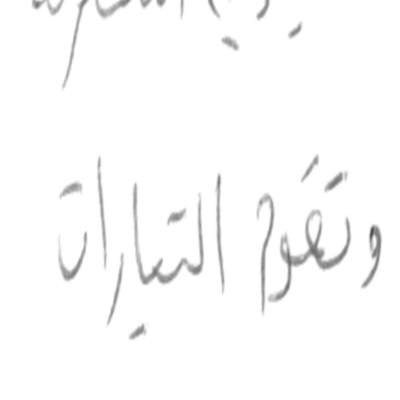 وتقوم التيارات